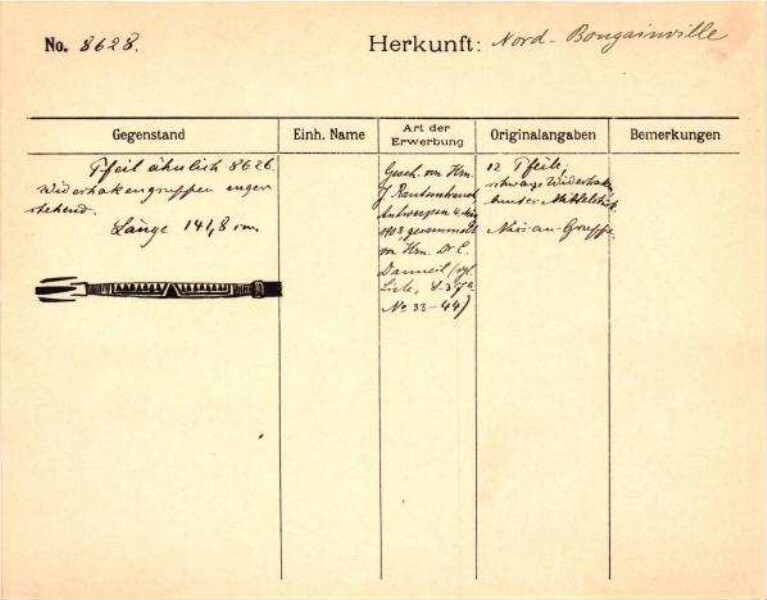 No. 8628.
Herkunft: Nord-Bougainville
Gegenstand
Einh. Name
Art der Erwerbung
Originalangaben
Bemerkungen
Pfeil ähnlich 8626.
Widerhakengruppen enger
stehend.
Länge 141,8 cm
Gesch. von Hrn.
J Rautenstrauch
Antwerpen 4.
1903, gesammelt
von Hrn. Dr C.
Danneil (vgl.
Liste,
No 33-44)
12 Pfeile,
schwarze Widerhak.
bunder Mittelstück.
-Gruppe.